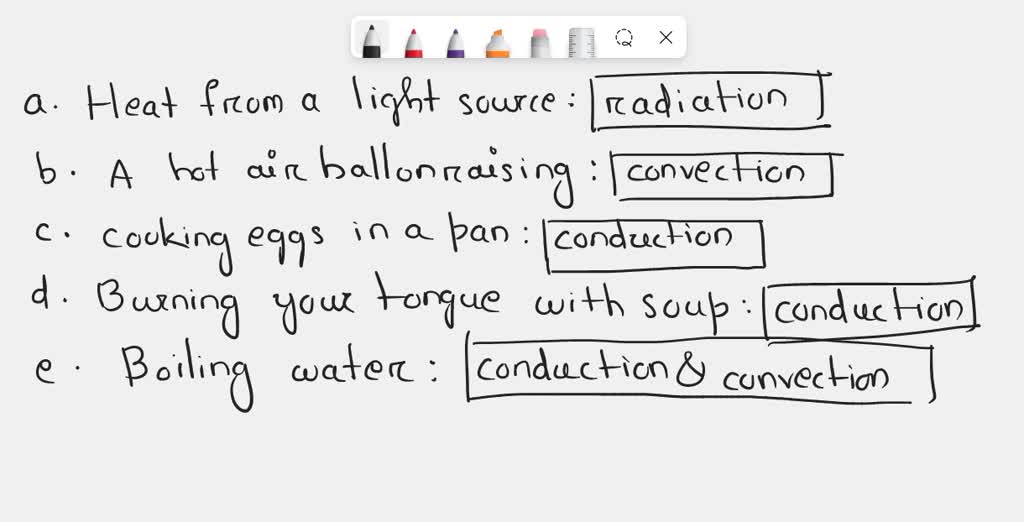 a. Heat from a light source: radiation
b. A hot air ballon raising: convection
c. cooking eggs in a pan: conduction
d. Burning your tongue with soup: conduction
e. Boiling water: conduction & convection